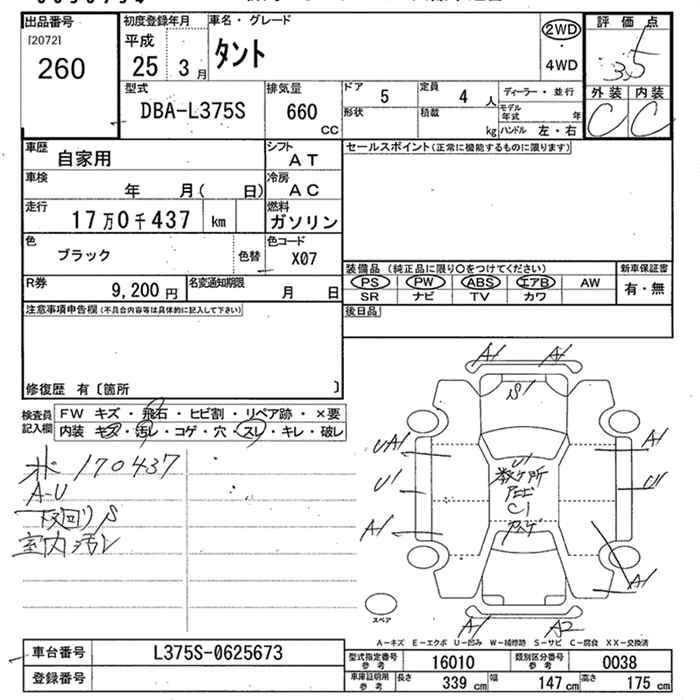 出品番号
[2072]
260
初度登録年月
平成
25 3月
車名・グレード
タント
2WD
・
4WD
評価点
3.5
外装 内装
C C
型式
DBA-L375S
排気量
660
cc
ドア 5
形状
定員 4 人
積載 kg
ディーラー・並行
モデル年式 年
ハンドル 左・右
車歴
自家用
シフト
AT
車検
年 月( 日)
冷房
AC
走行
17万0千437 km
燃料
ガソリン
色
ブラック
色替
色コード
X07
R券
9,200円
名変通知期限
月 日
セールスポイント(正常に機能するものに限ります)
装備品 (純正品に限り○をつけてください)
新車保証書
PS PW ABS エアB AW
有・無
SR ナビ TV カワ
後日品
注意事項申告欄(不具合内容等は具体的に記入して下さい)
修復歴 有〔箇所 〕
検査員
記入欄
FW キズ・飛石・ヒビ割・リペア跡・×要
内装 キズ・汚レ・コゲ・穴・スレ・キレ・破レ
170437
A-U
下回りS
室内汚レ
A1 A1
S1
UA1
A1
U1
U1
数ケ所
C1
A1
A1
A1 A2
スペア
A-キズ E-エクボ U-凹み W-補修跡 S-サビ C-腐食 XX-交換済
車台番号
L375S-0625673
登録番号
型式指定番号
参考
16010
類別区分番号
参考
0038
車庫証明用
参考
長さ 339cm
幅 147cm
高さ 175cm